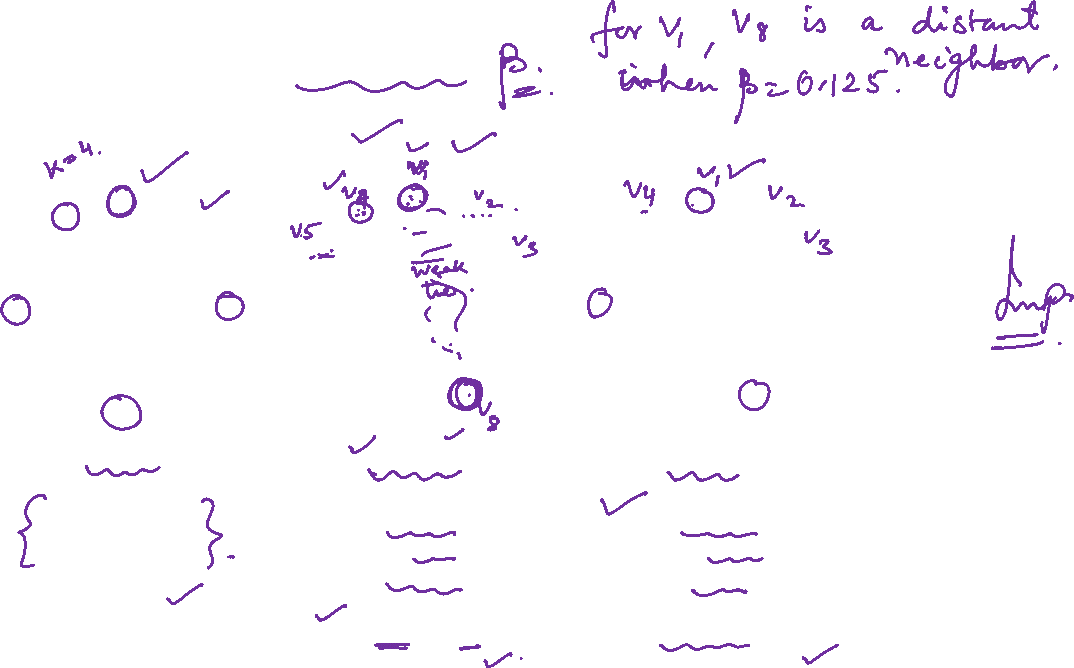 for V₁, V₈ is a distant
neighbor.
when β = 0.125.
β.
K=4.
V₁
V₈
V₂
V₅
V₃
weak
tie.
V₈
V₄
V₁
V₂
V₃
Imp.